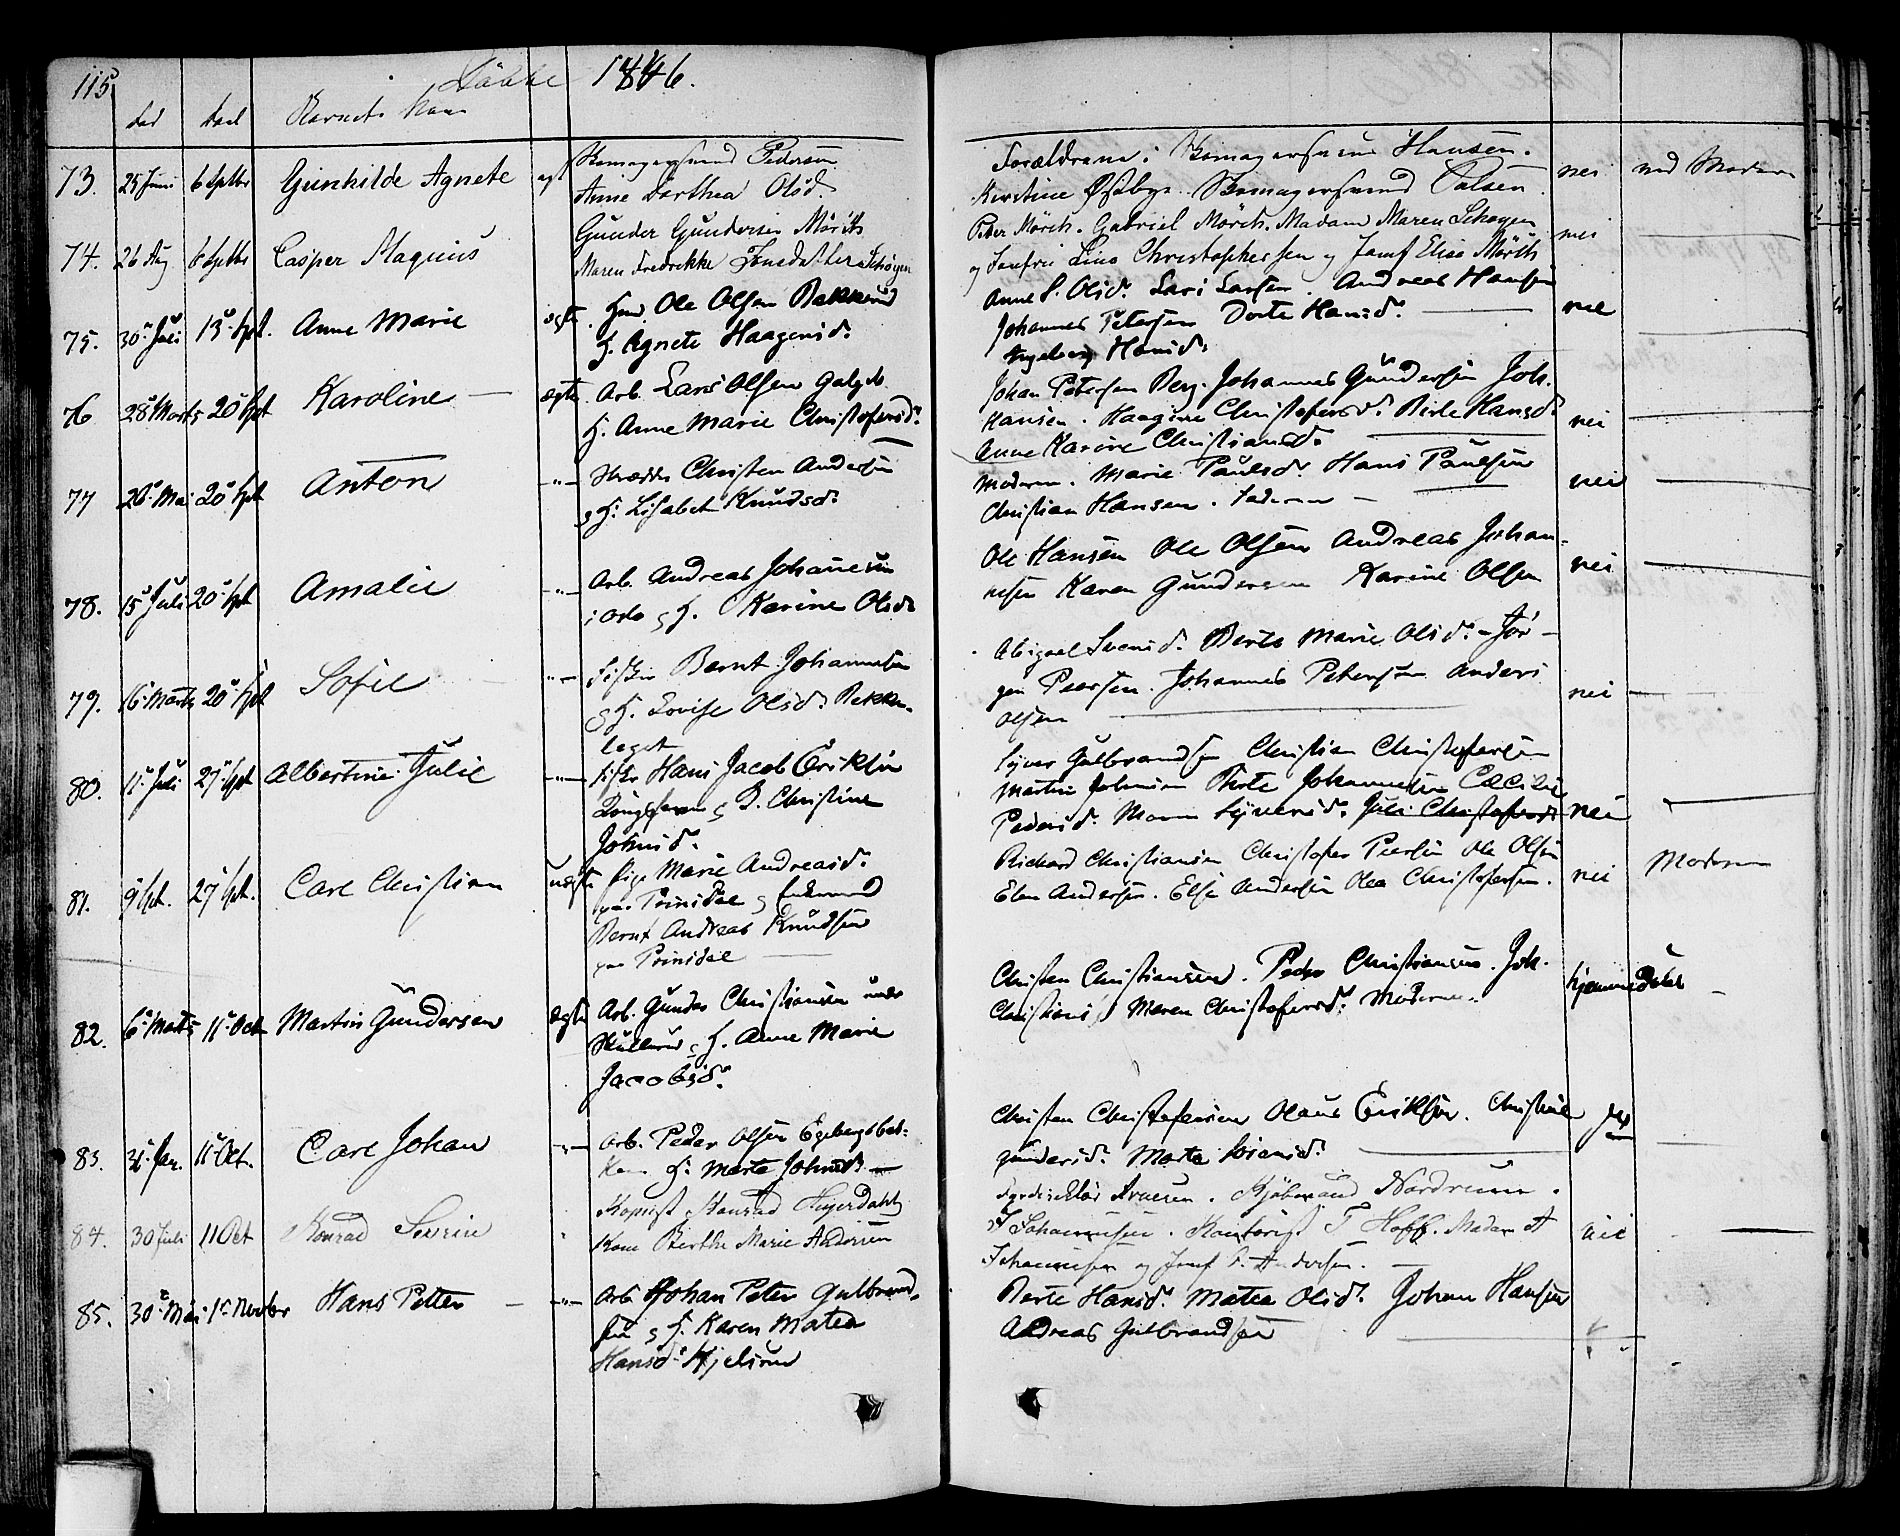 115 1846.
Barnets Navn
73. 25 Juni 6 Septbr Gunhilde Agnete Skomagersvend Pedersen
Anne Dorthea Olsd.
Forældrene. Skomagersvend Hansen.
Kirstine Østbye. Skomagersvend Olsen nei ved Moderen
74. 26 Aug 6 Septbr Casper Magnus Gunder Gundersen Mörch
Maren Fredrikke Jensdatter Schøyen
Peter Mörch. Gabriel Mörch. Madam Maren Schøyen
og Jomfru Lina Christophersen og Jomf Elise Mörch nei
75. 30 Juli 13 Sept. Anne Marie ægte Ole Olsen Bakkerud
H. Agnete Haagensd.
Anne S. Olsd. Lars Larsen. Andreas Hansen
Johannes Petersen Dorte Hansd. — nei
Ingeborg Hansd.
76 28 Marts 20 Sept Karoline — ægte Arb. Lars Olsen Galgeb.
H. Anne Marie Christofersd.
Johan Petersen Berg. Johannes Gundersen Joh.
Hansen. Haagine Christofersd. Berte Hansd. nei
Anne Karine Christiansd.
77 26 Mai 20 Sept Anton — " — Skrædder Christen Andersen
og H. Lisabet Knudsd.
Moderen. Marie Paulsd. Hans Paulsen nei
Christian Hansen. Faderen —
78. 15 Juli 20 Sept Amalie — " — Arb. Andreas Johannesen
i Oslo og H. Karine Olsd.
Ole Hansen Ole Olsen Andreas Johan-
nesen Karen Gundersen Karine Olsen nei
79. 16 Marts 20 Sept Sofie — " — Fisker Bernt Johannesen
og H. Lovise Olsd. Bekke-
leget
Abigael Svensd. Berte Marie Olsd. Jør-
gen Peersen. Johannes Petersen Anders nei
Olsen
80. 11 Juli 27 Sept Albertine Julie — " — Fisker Hans Jacob Eriksen
og K. Christine
Johnsd.
Syver Gulbrandsen Christian Christofersen
Martin Johnsen Berte Johannesen Cæcilie
Pedersd. Maren Syversd. Juli Christofersd. nei
81. 9 Sept. 27 Sept. Carl Christian uægte Pige Marie Andreasd.
paa Prinsdal og Enkemand
Bernt Andreas Knudsen
paa Prinsdal —
Richard Christiansen Christofer Peersen Ole Olsen
Elen Andersen. Else Andersen Olea Christofersen. nei Moderen
82. 6 Marts 11 Oct Martin Gundersen ægte Arb. Gunder Christiansen under
og H. Anne Marie
Jacobsd.
Christen Christiansen. Peder Christiansen. Joh.
Christians Maren Christofersd. Moderen. hjemmedøbt
83. 31 Jan. 11 Oct. Carl Johan — " — Arb. Peder Olsen Egebergsbak-
ken H. Marte Johnsd.
Christen Christofersen Olaus Eriksen. Christine
Gundersd. Marte
84. 30 Juli 11 Oct Konrad Severin Kopiist Konrad Hejerdahl
Kone Berthe Marie Andersen
Kjøbmand Nordrum.
Johannessen. Kontorist T Hoff. Madam A
Johannessen og Jomf P. Andersen. nei
85. 30 Mai 1 Novbr Hans Petter — " — Arb Johan Peter Gulbrand-
sen og H. Karen Matea
Hansd.
Berte Hansd. Matea Olsd. Johan Hansen
Andreas Gulbrandsen